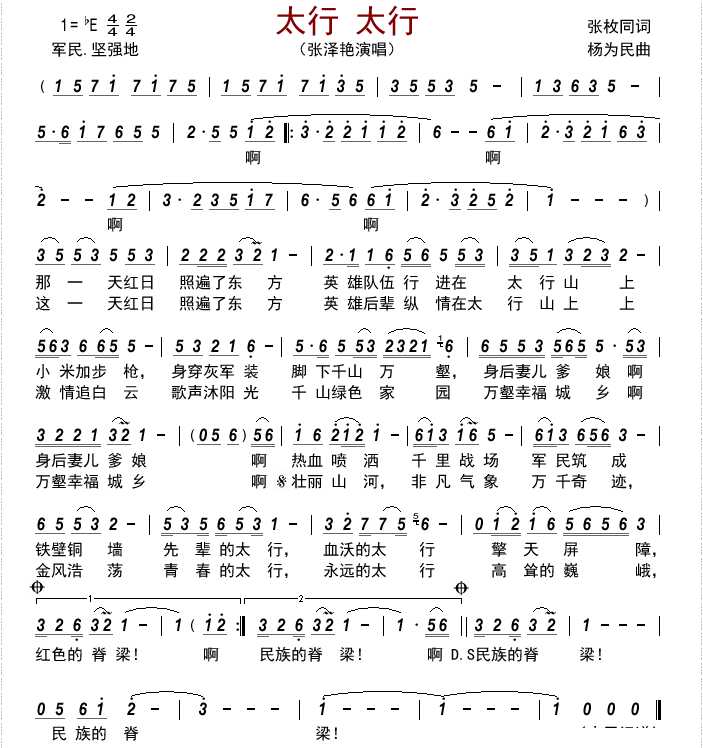 太行 太行
1=♭E 4/4 2/4
张枚同词
军民.坚强地
（张泽艳演唱）
杨为民曲
(1 5 7 1 7 1 7 5 | 1 5 7 1 7 1 3 5 | 3 5 5 3 5 - | 1 3 6 3 5 - |
5·6 1 7 6 5 5 | 2·5 5 1 2 |: 3·2 2 1 1 2 | 6 - - 6 1 | 2·3 2 1 6 3 |
啊 啊
2 - - 1 2 | 3·2 3 5 1 7 | 6·5 6 6 1 | 2·3 2 5 2 | 1 - - - )
啊 啊
3 5 5 3 5 5 3 | 2 2 2 3 2 1 - | 2·1 1 6 5 6 5 5 3 | 3 5 1 3 2 3 2 - |
那 一 天红日 照遍了东 方 英 雄队伍 行 进在 太 行 山 上
这 一 天红日 照遍了东 方 英 雄后辈 纵 情在太 行 山 上 上
5 6 3 6 6 5 5 - | 5 3 2 1 6 - | 5·6 5 5 3 2 3 2 1 1 6 | 6 5 5 3 5 6 5 5·5 3 |
小 米加步 枪， 身穿灰军 装 脚 下千山 万 壑， 身后妻儿 爹 娘 啊
激 情追白 云 歌声沐阳 光 千 山绿色 家 园 万壑幸福 城 乡 啊
3 2 2 1 3 2 1 - | (0 5 6) 5 6 | 1 6 2 1 2 1 - | 6 1 3 1 6 5 - | 6 1 3 6 5 6 3 - |
身后妻儿 爹 娘 啊 热血 喷 洒 千 里 战 场 军 民筑 成
万壑幸福 城 乡 啊 𝄋壮丽 山 河， 非 凡 气 象 万 千奇 迹，
6 5 5 3 2 - | 5 3 5 6 5 3 1 - | 3 2 7 7 5 5 6 - | 0 1 2 1 6 5 6 5 6 3 |
铁壁铜 墙 先 辈 的太 行， 血沃的太 行 擎 天 屏 障，
金风浩 荡 青 春 的太 行， 永远的太 行 高 耸的 巍 峨，
1 2
3 2 6 3 2 1 - | 1 ( 1 2 :| 3 2 6 3 2 1 - | 1 · 5 6 || 3 2 6 3 2 | 1 - - - |
红色的 脊 梁！ 啊 民族的脊 梁！ 啊 D.S民族的脊 梁！
0 5 6 1 2 - | 3 - - - | 1 - - - | 1 - - - | 1 0 0 0 ‖
民 族的 脊 梁！